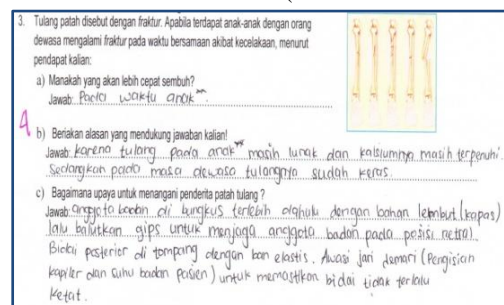 3. Tulang patah disebut dengan fraktur. Apabila terdapat anak-anak dengan orang
dewasa mengalami fraktur pada waktu bersamaan akibat kecelakaan, menurut
pendapat kalian:
a) Manakah yang akan lebih cepat sembuh?
Jawab: Pada waktu anak".
4
b) Beriakan alasan yang mendukung jawaban kalian!
Jawab: karena tulang pada anak" masih lunak dan kalsiumnya masih terpenuhi.
Sedangkan pada masa dewasa tulangnya sudah keras.
c) Bagaimana upaya untuk menangani penderita patah tulang ?
Jawab: anggota badan di bungkus terlebih dahulu dengan bahan lembut (kapas)
lalu balutkan gips untuk menjaga anggota badan pada posisi netral.
Bidai posterior di tompang dengan ban elastis. Awasi jari Jemari (Pengisian
kapiler dan suhu badan pasien) untuk memastikan bidai tidak terlalu
ketat.